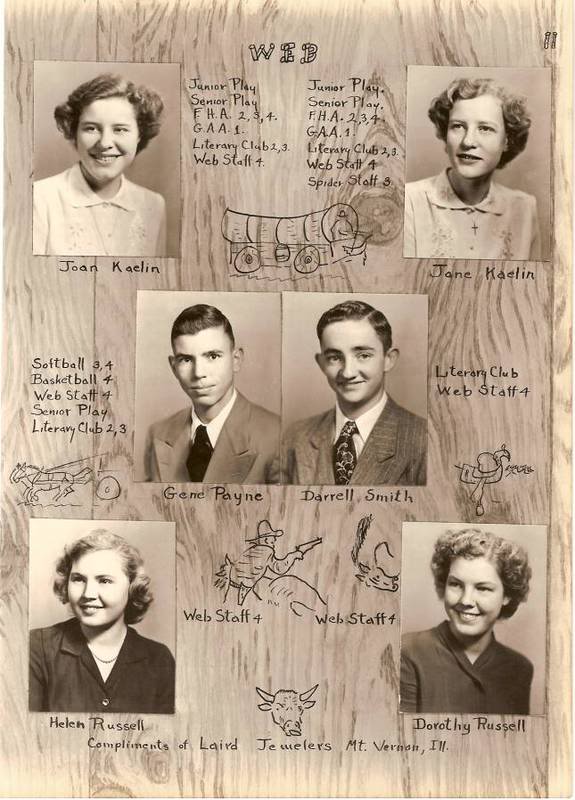 11
WEB
Junior Play
Senior Play
F.H.A. 2,3,4.
G.A.A. 1.
Literary Club 2,3.
Web Staff 4.
Junior Play.
Senior Play.
F.H.A. 2,3,4.
G.A.A. 1.
Literary Club 2,3.
Web Staff 4
Spider Staff 3
Joan Kaelin
Jane Kaelin
Softball 3,4
Basketball 4
Web Staff 4
Senior Play
Literary Club 2,3
Literary Club
Web Staff 4
Gene Payne
Darrell Smith
Web Staff 4
Web Staff 4
Helen Russell
Dorothy Russell
Compliments of Laird Jewelers Mt. Vernon, Ill.